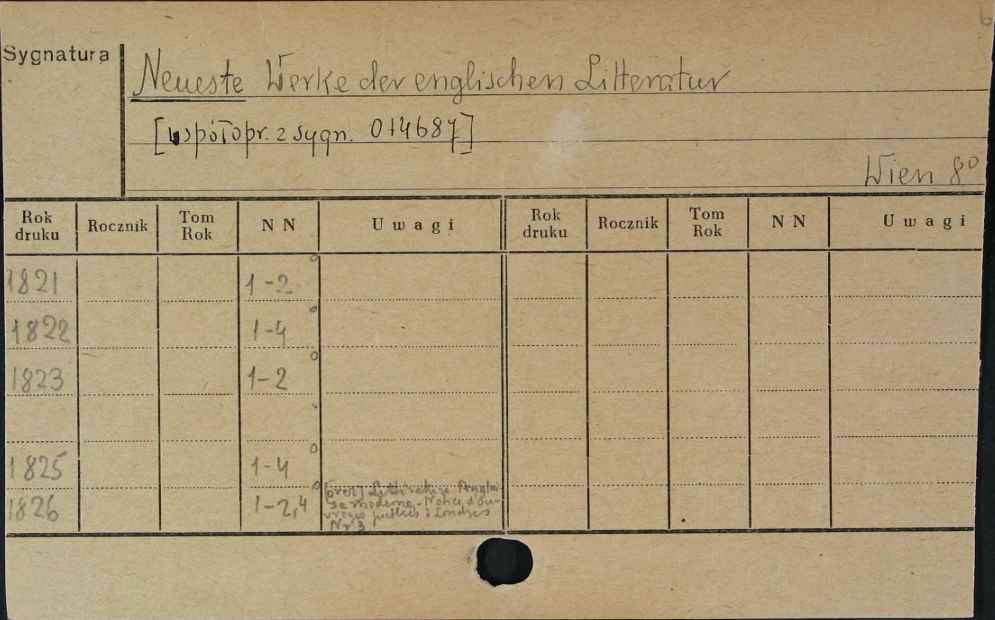 6
Sygnatura
Neueste Werke der englischen Litteratur
[współopr. z sygn. 014687]
Wien 8°
Rok druku Rocznik Tom Rok NN Uwagi Rok druku Rocznik Tom Rok NN Uwagi
1821 1-2
1822 1-4
1823 1-2
1825 1-4
1826 1-2,4
Littérature Anglai-
se moderne. Notice d'ou-
vrages publiés à Londres
Nr 3